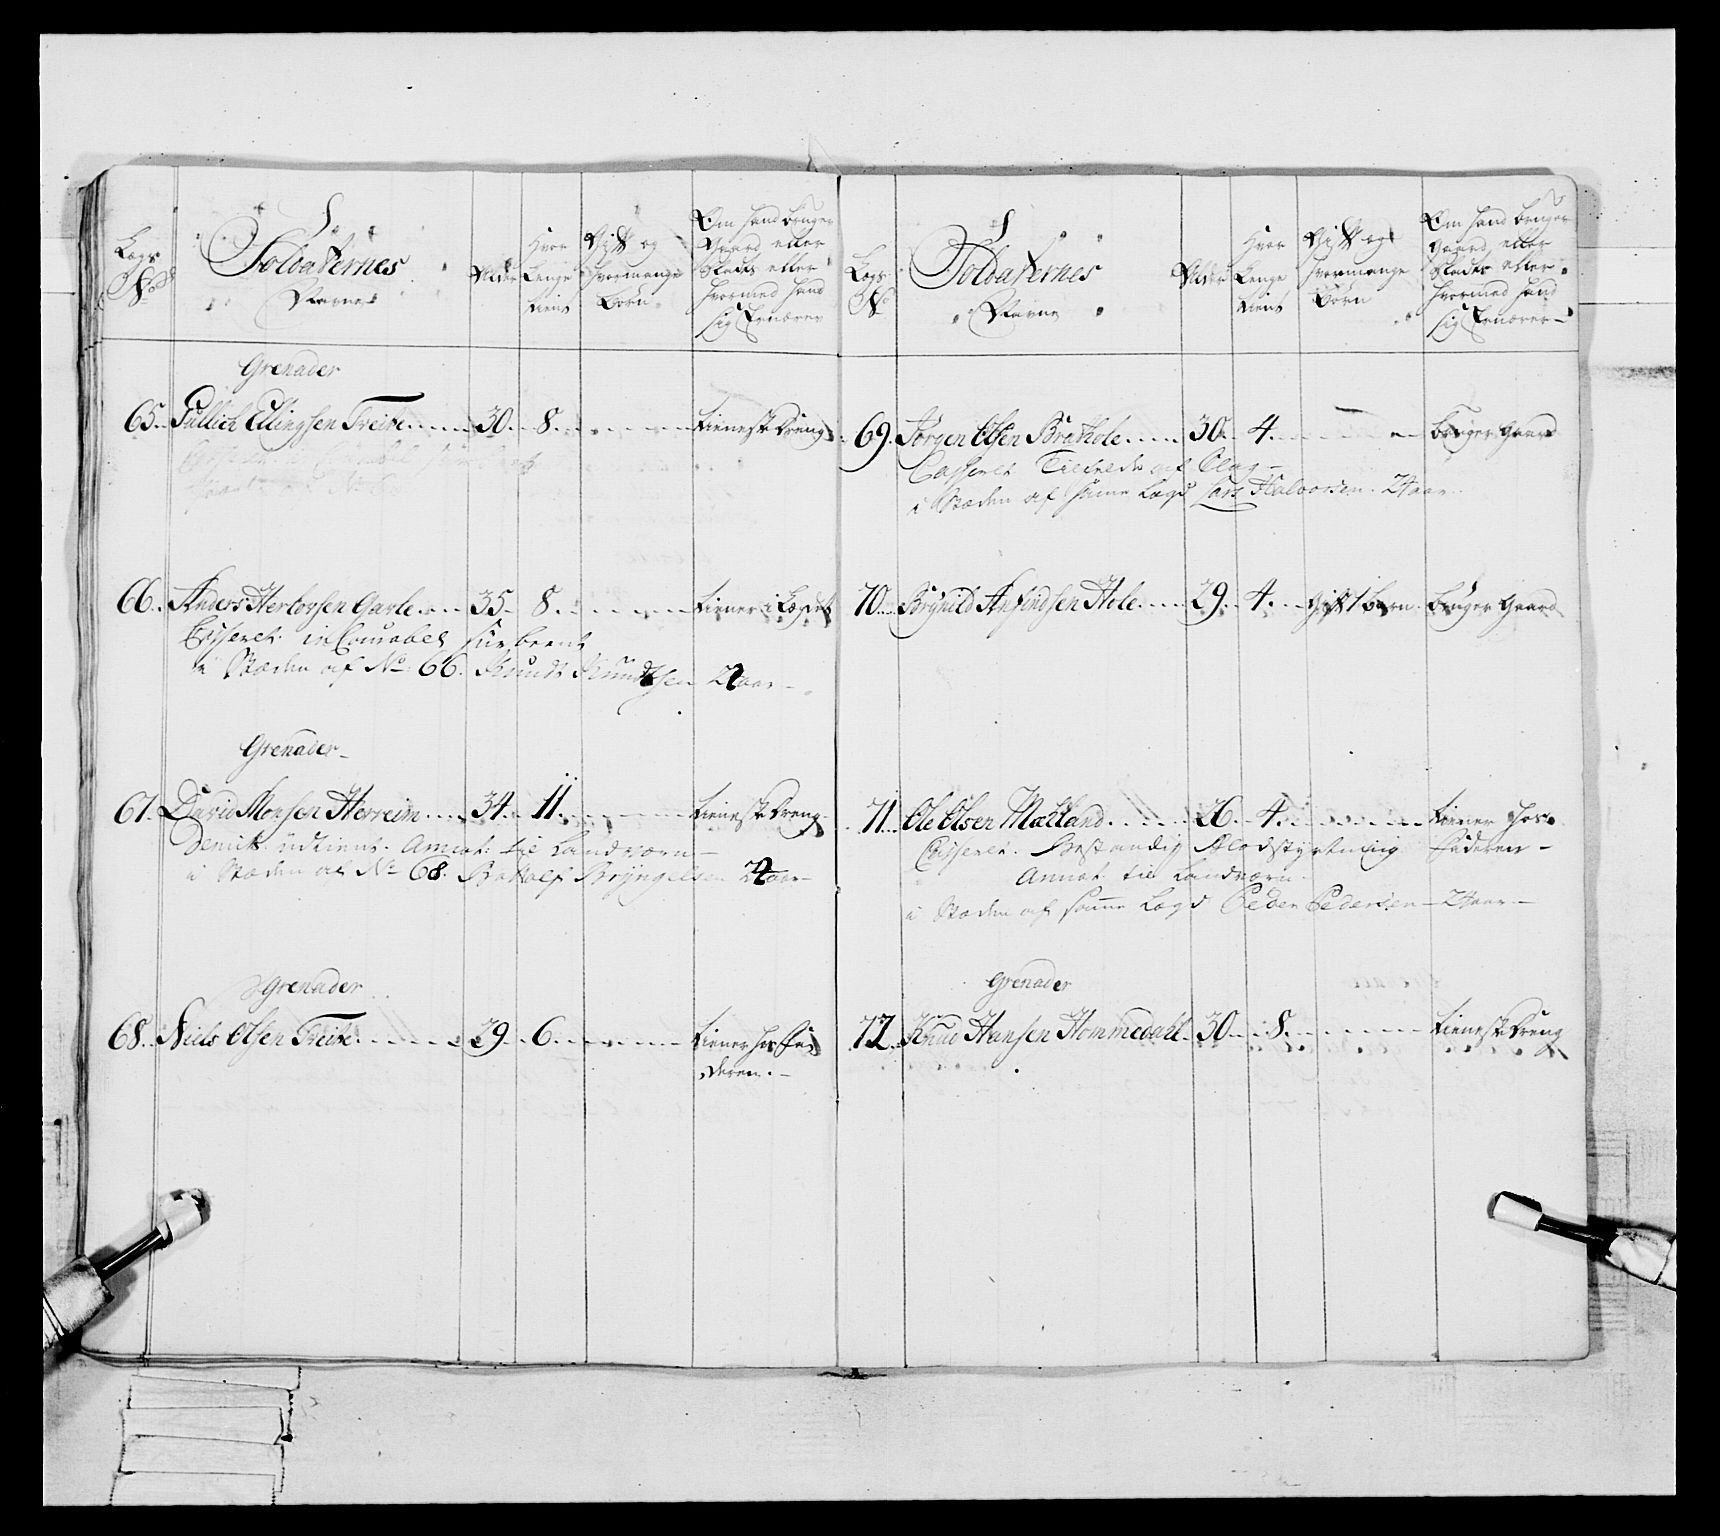 Lægs
No
Soldaternes
Nafne
Alder
Hvor
Længe
tient
Gift og
hvormange
Børn
Om hand bruger
Gaard eller
Stæds eller
hvormed hand
sig Ernærer
Grenader
65. Gullich Ellingsen Treite 30. 8. tieneste Dreng
66. Anders Herlovsen Garle 35. 8. tiener i Lægdet
Casseret
i Stæden af No 66. Knudt Knudtsen 22 aar
Grenader
67. David Monsen Herreim 34. 11. tieneste Dreng
udtient. Annot: til Landværn
i Stæden af No 68. Bottolf Bryngelsen 22 aar
Grenader
68. Niels Olsen Treite 29. 6. tiener hos Fa
deren.
Lægs
No
Soldaternes
Nafne
Alder
Hvor
Længe
tient
Gift og
hvormange
Børn
Om hand bruger
Gaard eller
Stæds eller
hvormed hand
sig Ernærer
69. Jørgen Olsen Brathole 30. 4. bruger Gaard
Casseret
i Stæden af samme Lægd Lars Halvorsen 24 aar
70. Brynild Anfindsen Hole 29. 4. Gift 1 barn. bruger Gaard
71. Ole Olsen Mætland 26. 4. tiener hos
Casseret. Bestandig Blodstyrtning Faderen
Annot til Landværn
i Stæden af samme Lægd Peder Pedersen 24 aar
Grenader
72. Knud Hansen Hommedahl 30. 8. tieneste Dreng